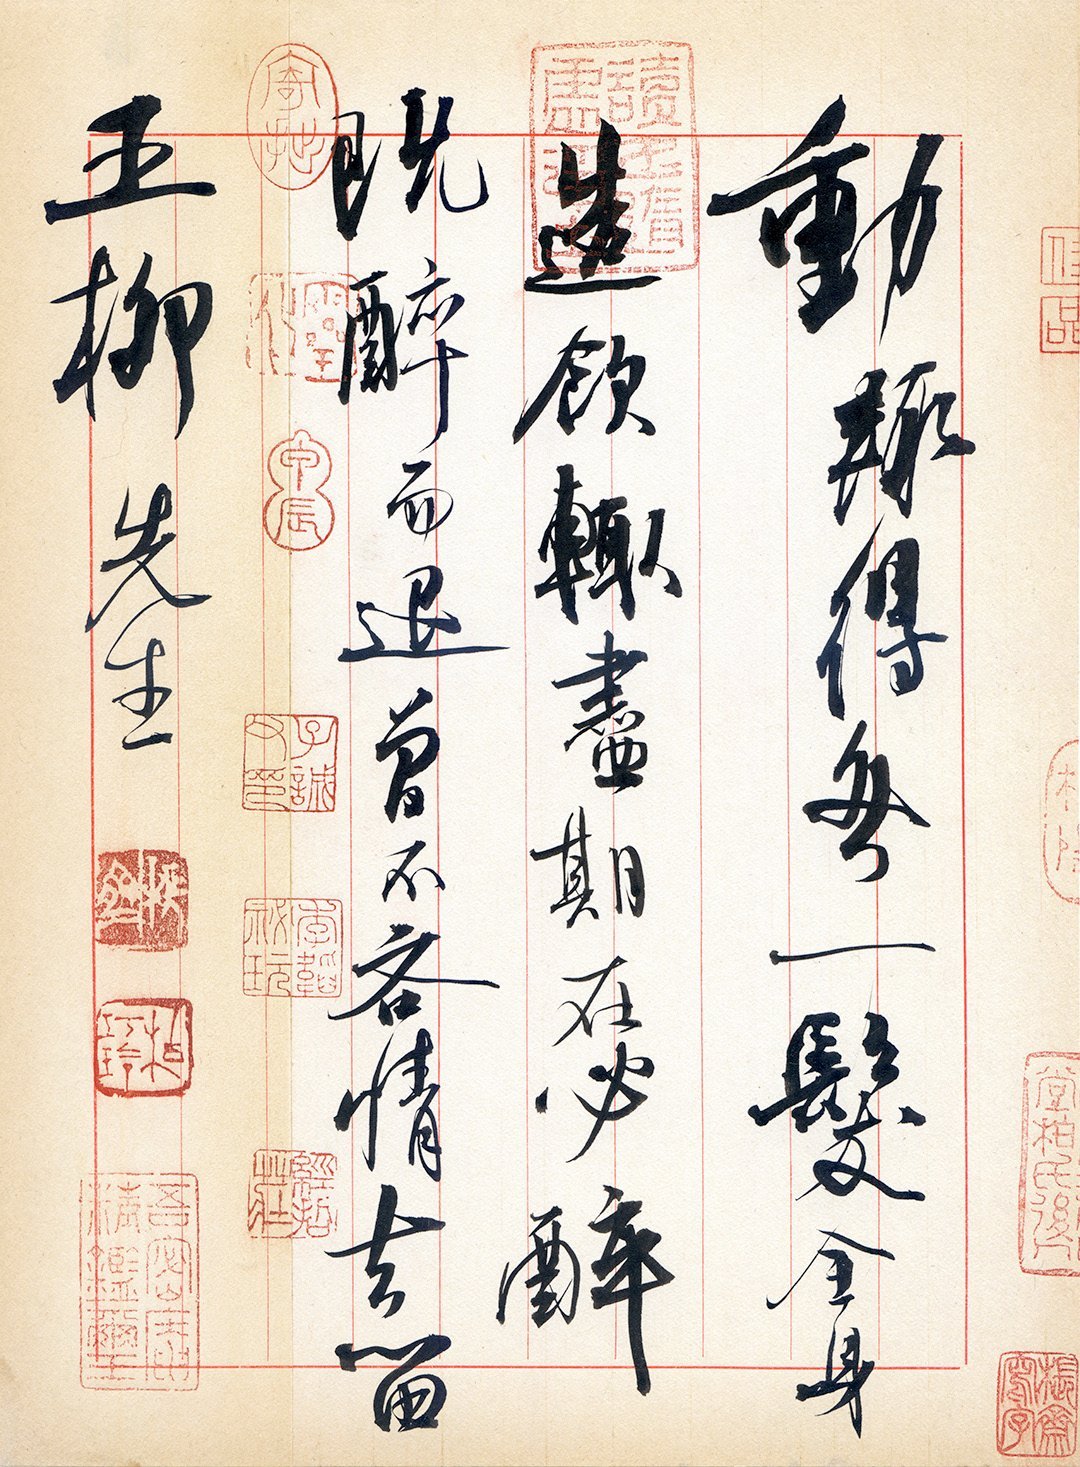 動輒得咎一髮全身
造飲輒盡期在必醉
既醉而退曾不吝情去留
五柳先生
佳品
甲辰